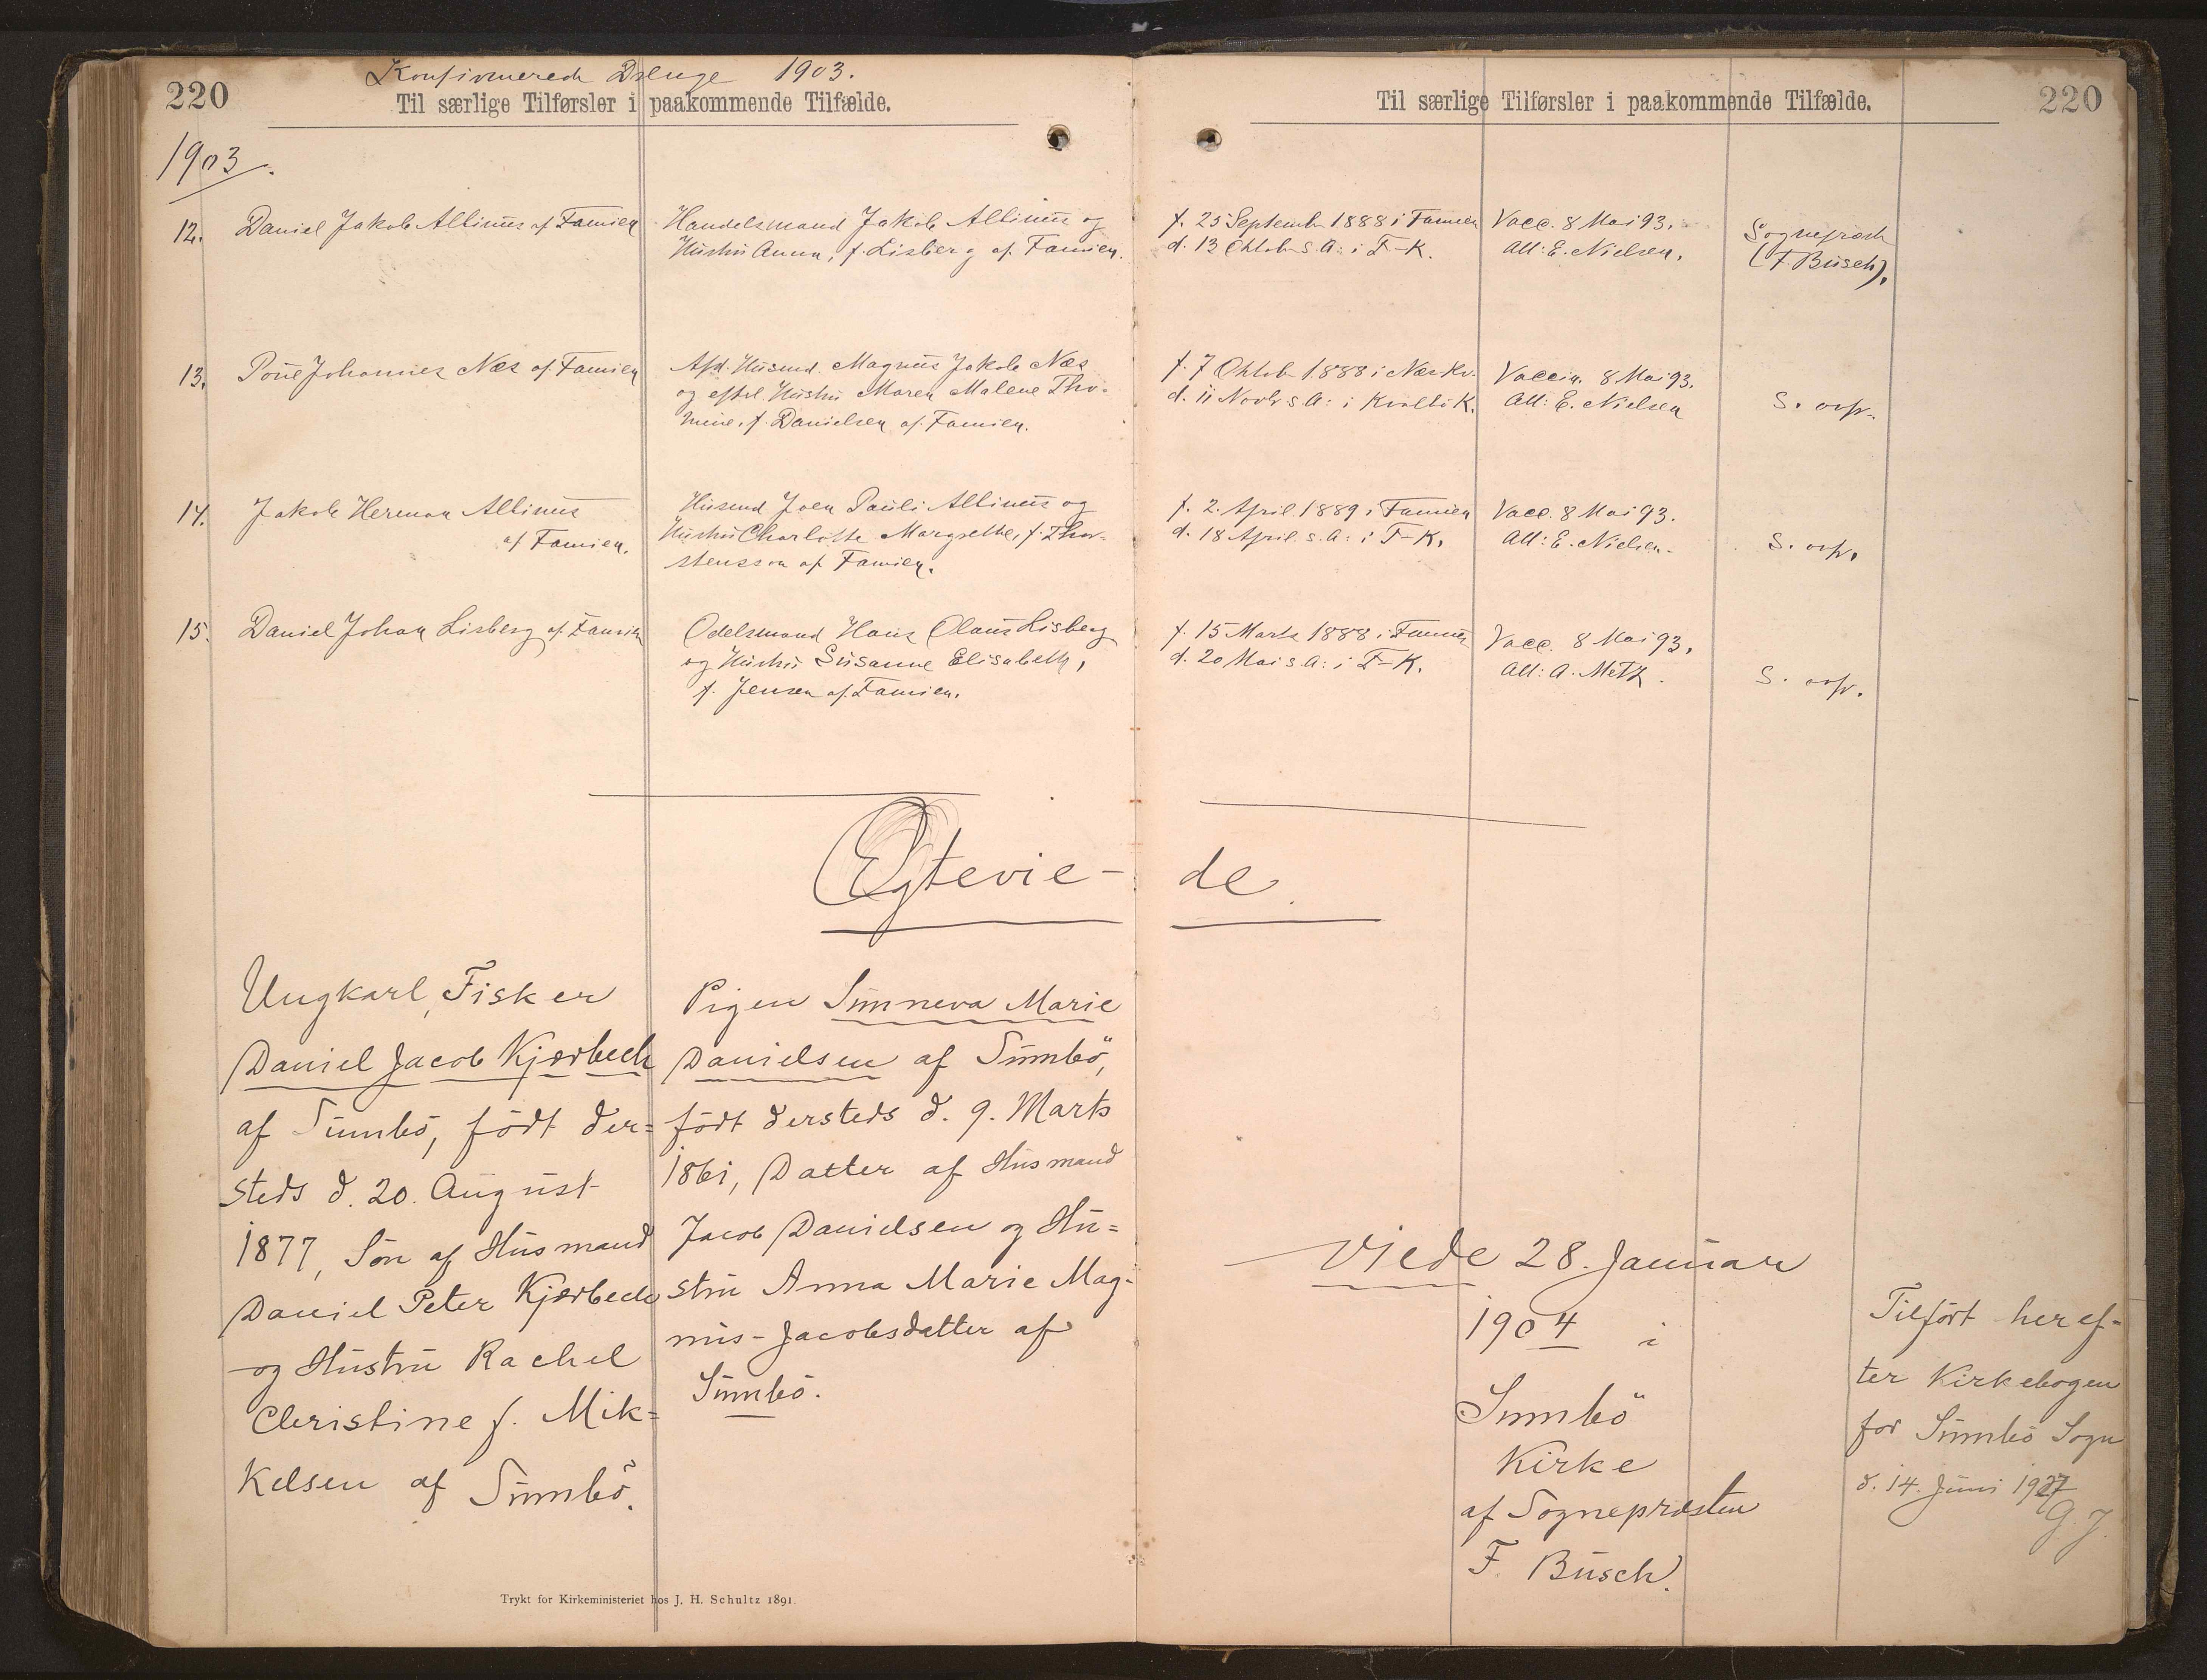 Konfirmerede Drenge 1903.
220
Til særlige Tilførsler i paakommende Tilfælde.
1903.
12. Daniel Jakob Allinus af Famien
Handelsmand Jakob Allinus og
Hustru Anna, f. Lisberg af Famien.
13. Poul Johannes Næs af Famien
Afd. Husmd. Magnus Jakob Næs
og eftel. Hustru Maren Malene Tho-
mine, f. Danielsen af Famien.
14. Jakob Herman Allinus
af Famien.
Husmd Joen Pauli Allinus og
Hustru Charlotte Margrethe, f. Thor-
stensson af Famien.
15. Daniel Johan Lisberg af Famien
Odelsmand Hans Olaus Lisberg
og Hustru Susanne Elisabeth,
f. Jensen af Famien.
Ægtevie-
Ungkarl, Fisker
Daniel Jacob Kjærbech
af Sumbö, födt der=
steds d. 20. August
1877, Sön af Husmand
Daniel Peter Kjærbech
og Hustru Rachel
Christine f. Mik=
kelsen af Sumbö.
Pigen Sunneva Marie
Danielsen af Sumbö,
födt dersteds d. 9. Marts
1861, Datter af Husmand
Jacob Danielsen og Hu=
stru Anna Marie Mag-
nus-Jacobsdatter af
Sumbö.
Trykt for Kirkeministeriet hos J. H. Schultz 1891.
Til særlige Tilførsler i paakommende Tilfælde.
220
f. 25 Septemb 1888 i Famien
d. 13 Oktob s. A: i F-K.
Vacc. 8 Mai 93.
Att: E. Nielsen.
Sognepræst
(F. Busch).
f. 7 Oktob 1888 i Næs Kv.
d. 11 Novb s. A: i Kvalbö K.
Vaccin. 8 Mai 93.
Att: E. Nielsen
S. ovfr.
f. 2. April 1889 i Famien
d. 18 April s. A: i F-K.
Vacc. 8 Mai 93.
Att: E. Nielsen.
S. ovfr.
f. 15 Marts 1888 i Famien
d. 20 Mai s. A: i F-K.
Vacc. 8 Mai 93.
Att: A. Metz.
S. ovfr.
de.
Viede 28. Januar
1904 i
Sumbö
Kirke
af Sognepræsten
F. Busch.
Tilfört heref-
ter Kirkebogen
for Sumbö Sogn
d. 14. Juni 1927
G. J.